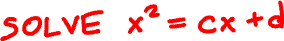 SOLVE x² = cx + d